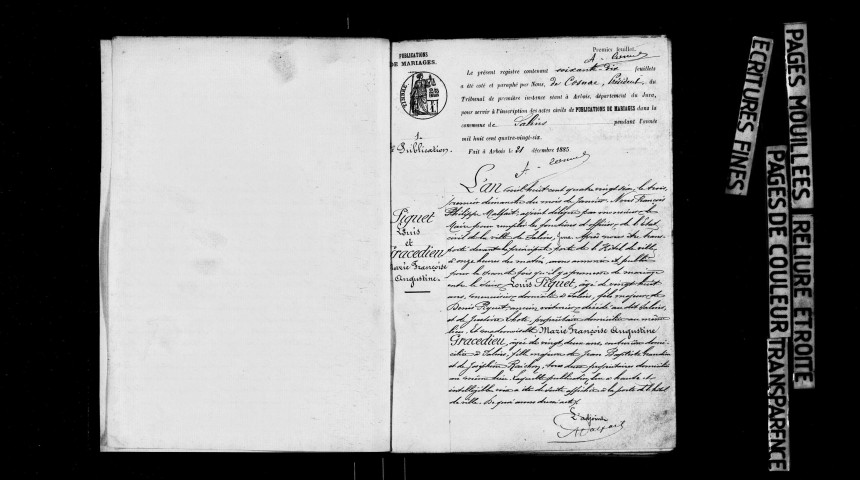 PUBLICATIONS
DE MARIAGES.
Premier feuillet.
Le présent registre contenant soixante-dix feuillets
a été coté et paraphé par Nous, de Cosnac, Président du
Tribunal de première instance séant à Arbois, département du Jura,
pour servir à l'inscription des actes civils de PUBLICATIONS DE MARIAGES dans la
commune de Salins pendant l'année
mil huit cent quatre-vingt-six.
Fait à Arbois le 21 décembre 1885
1
Publication.
Piquet
Louis
et
Gracedieu
Marie Françoise
Augustine.
L'an mil huit cent quatre vingt six, le trois,
premier dimanche du mois de Janvier. Nous François
Philippe Malfait, adjoint délégué par monsieur le
Maire pour remplir les fonctions d'officier de l'état
civil de la ville de Salins, Après nous être trans-
porté devant la principale porte de l'Hôtel de ville,
à onze heures du matin, avons annoncé et publié
pour la seconde fois qu'il y a promesse de mariage
entre le sieur Louis Piquet, âgé de vingt huit
ans, domicilié à Salins, fils majeur de
Denis Piquet, décédé au dit Salins,
et de propriétaire domiciliée au même
lieu. Et mademoiselle Marie Françoise Augustine
Gracedieu, âgée de vingt deux ans, couturière domi-
ciliée à Salins, fille majeure de Jean Baptiste Gracedieu
et de Joséphine tous deux propriétaires domiciliés
au même lieu. Laquelle publication, lue à haute et
intelligible voix a été de suite affichée à la porte de l'hôtel
de ville. De quoi avons dressé acte.
L'adjoint
Malfait
ECRITURES FINES
PAGES MOUILLEES
RELIURE ETROITE
PAGES DE COULEUR
TRANSPARENCE